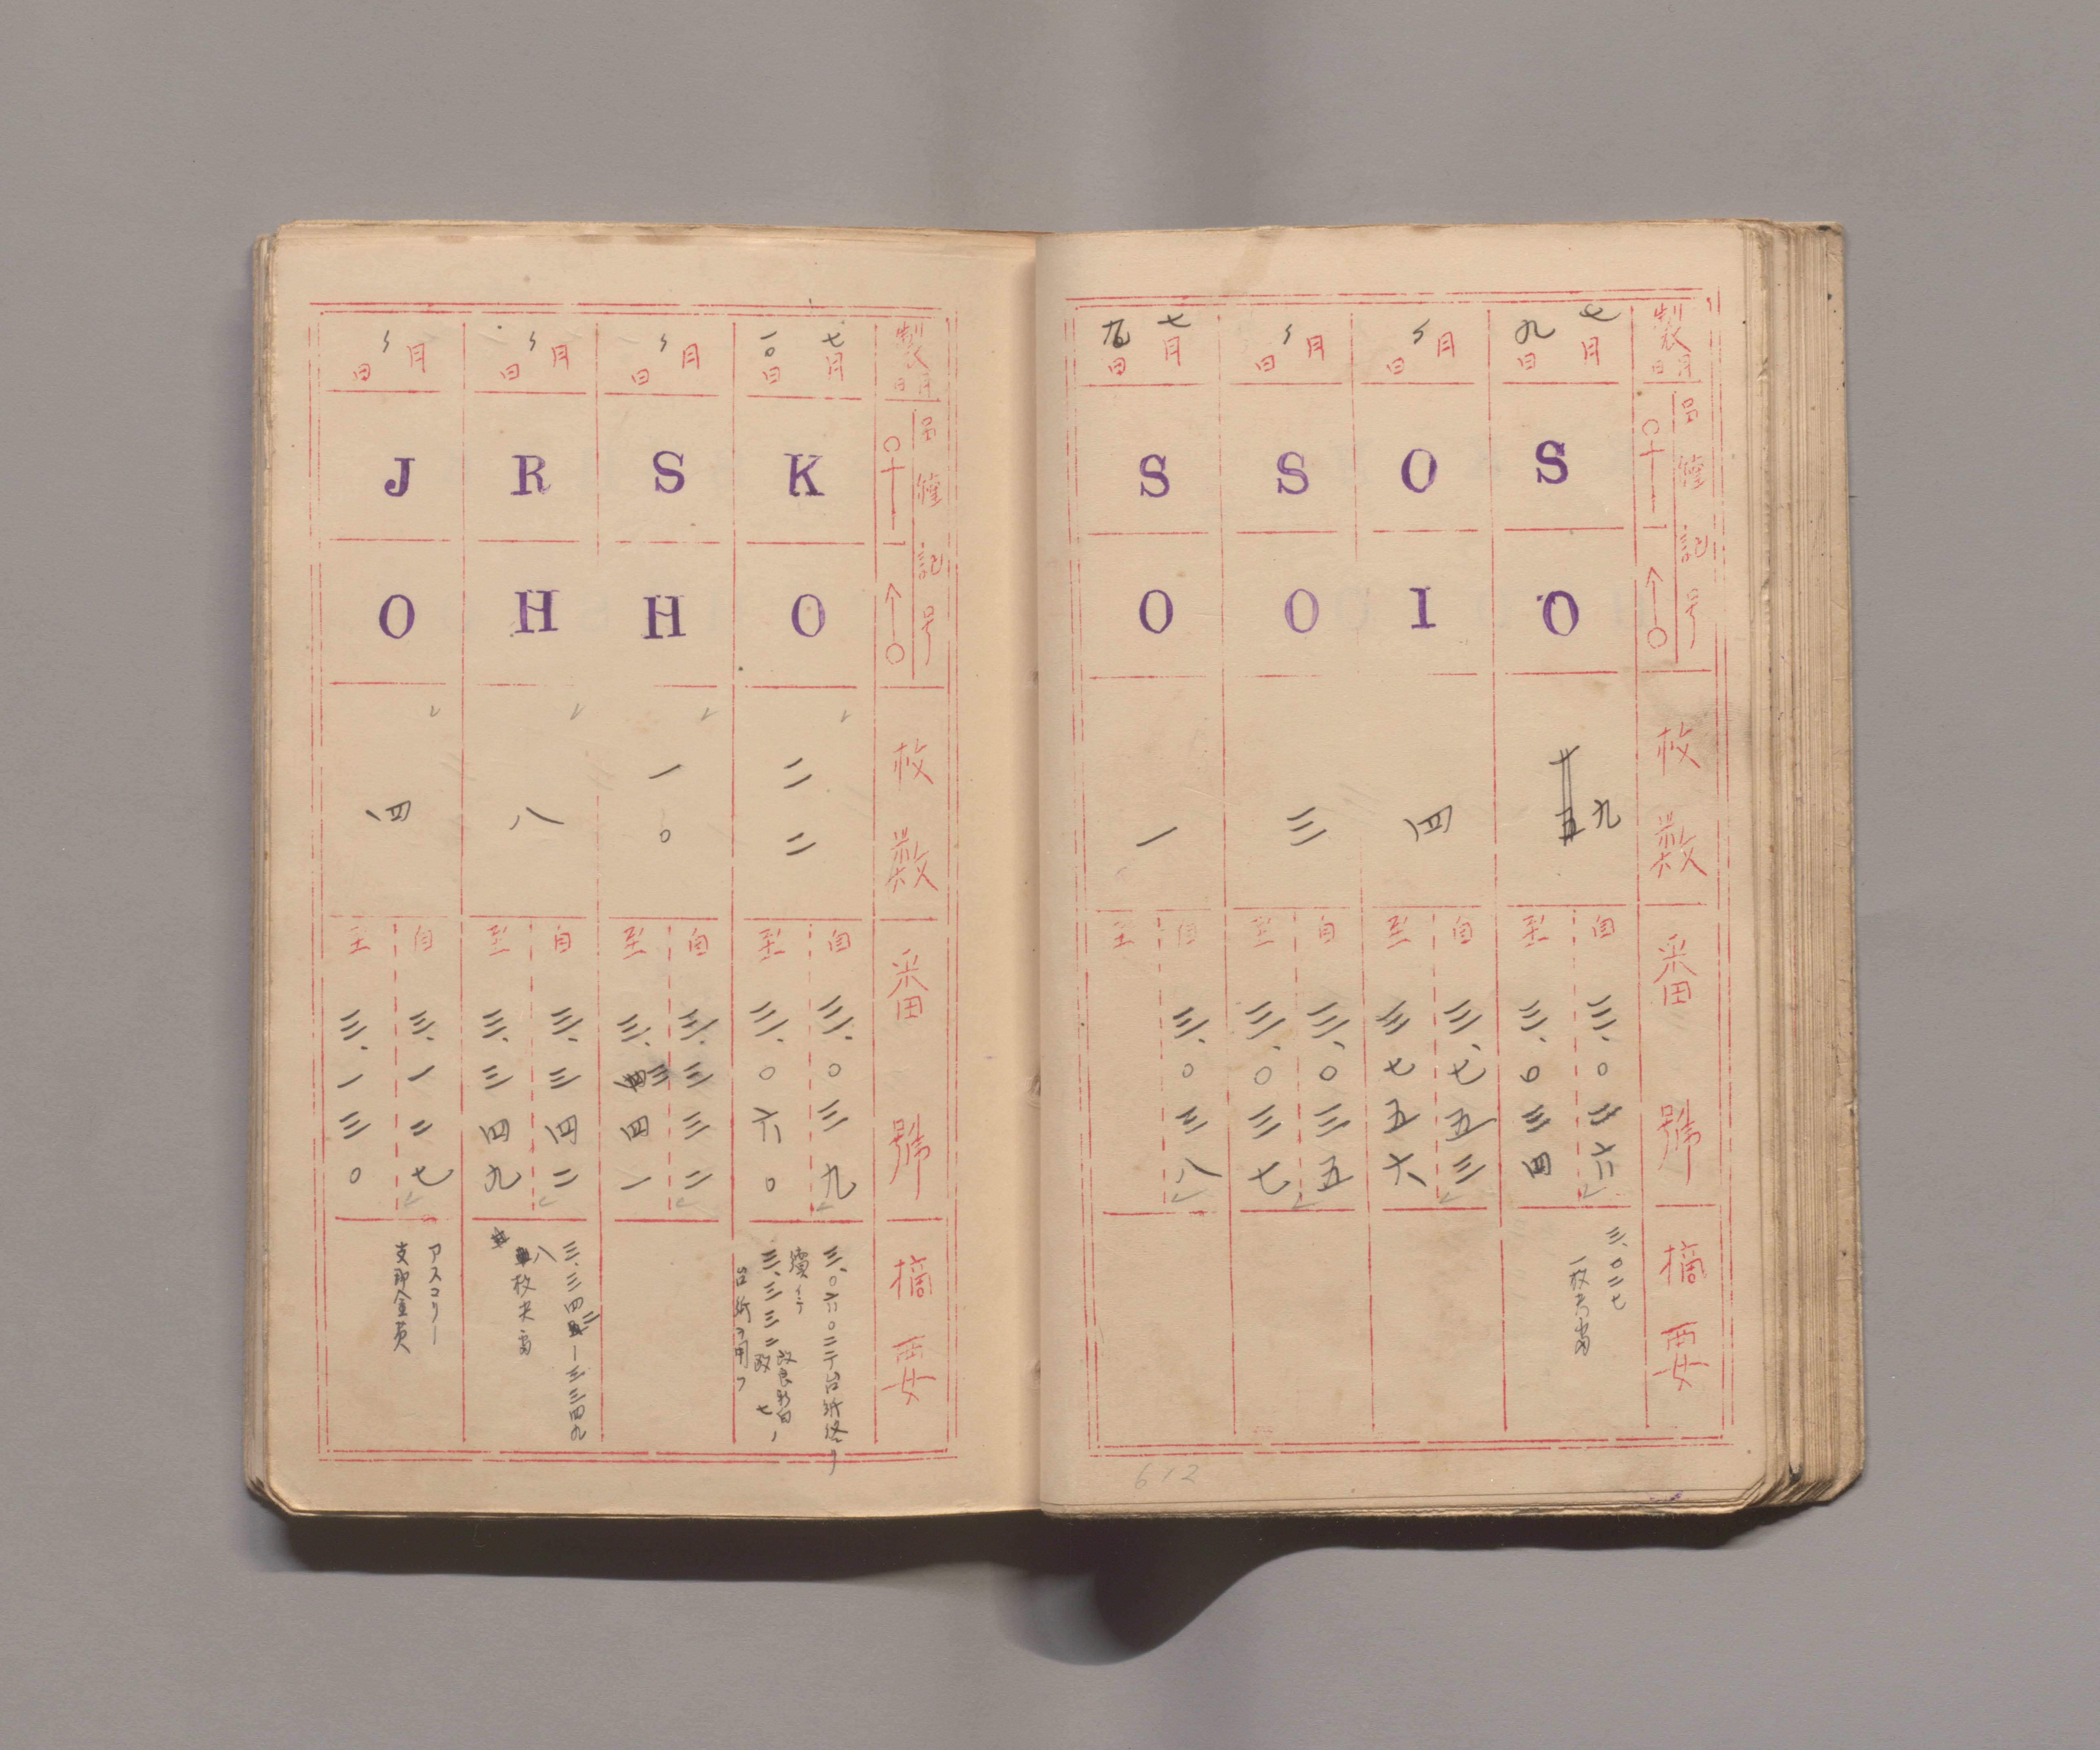 製月日
呂篁記号
枚数
番號
摘要
七月九日
S
O
九
自 三、〇二六
至 三、〇三四
三、〇二七
一枚
〻月日
O
I
四
自 三、七五三
至 三七五六
〻月日
S
O
三
自 三、〇三五
至 三、〇三七
七月九日
S
O
一
自 三、〇三八
至
612
製月日
記号
枚数
番號
摘要
七月一〇日
K
O
二二
自 三、〇三九
至 三、〇六〇
三、〇六〇ニテ台紙終リ
三、三三二
台紙ヲ用フ
〻月日
S
H
一〇
自 三、三三二
至 三、三四一
〻月日
R
H
八
自 三、三四二
至 三、三四九
三、三四二―三三四九
八枚
〻月日
J
O
四
自 三、一二七
至 三、一三〇
アスコリー
支那金黄